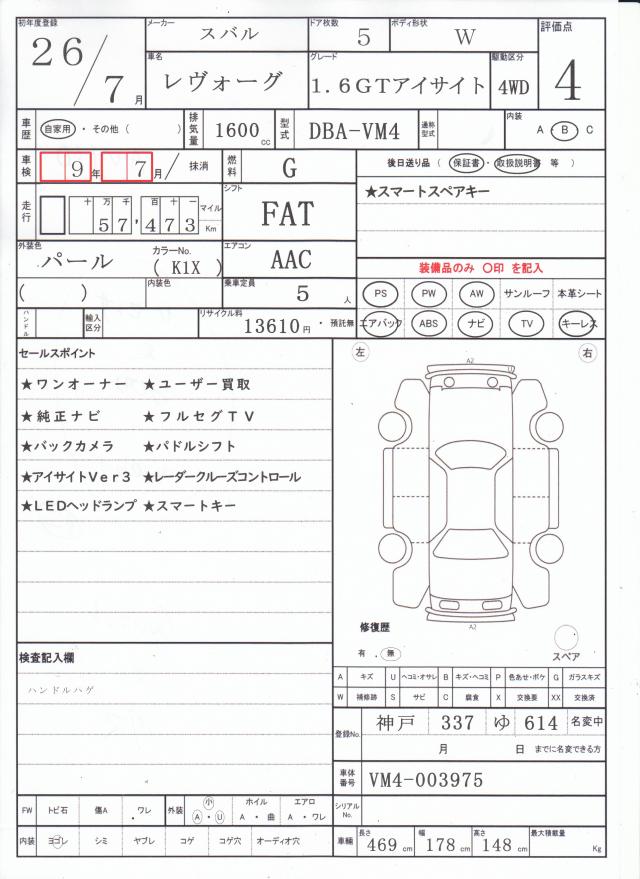 初年度登録 26/7月 メーカー スバル ドア枚数 5 ボディ形状 W 評価点 4
車名 レヴォーグ グレード 1.6GTアイサイト 駆動区分 4WD
車歴 自家用・その他( ) 排気量 1600cc 型式 DBA-VM4 通称型式 内装 A・B C
車検 9年7月/ 抹消 燃料 G 後日送り品(保証書・取扱説明書 等)
★スマートスペアキー
走行 十万千百十一 57,473 マイル Km シフト FAT
外装色 パール カラーNo. (K1X) エアコン AAC
装備品のみ 〇印 を記入
( ) 内装色 乗車定員 5人
PS PW AW サンルーフ 本革シート
ハンドル 輸入区分 リサイクル料 13610円・預託無
エアバック ABS ナビ TV キーレス
セールスポイント
★ワンオーナー ★ユーザー買取
★純正ナビ ★フルセグTV
★バックカメラ ★パドルシフト
★アイサイトVer3 ★レーダークルーズコントロール
★LEDヘッドランプ ★スマートキー
左 右
A2 U
A2
修復歴
有 . 無
スペア
検査記入欄
ハンドルハゲ
A キズ U ヘコミ・オサレ B キズ・ヘコミ P 色あせ・ボケ G ガラスキズ
W 補修跡 S サビ C 腐食 X 交換要 XX 交換済
登録No. 神戸 337 ゆ 614 名変中
月 日 までに名変できる方
車体番号 VM4-003975
FW トビ石 傷A ・ワレ 外装 小 A・U ホイル A・曲 エアロ A・ワレ
シリアルNo.
内装 ヨゴレ シミ ヤブレ コゲ コゲ穴 オーディオ穴
車輛 長さ 469cm 幅 178cm 高さ 148cm 最大積載量 Kg